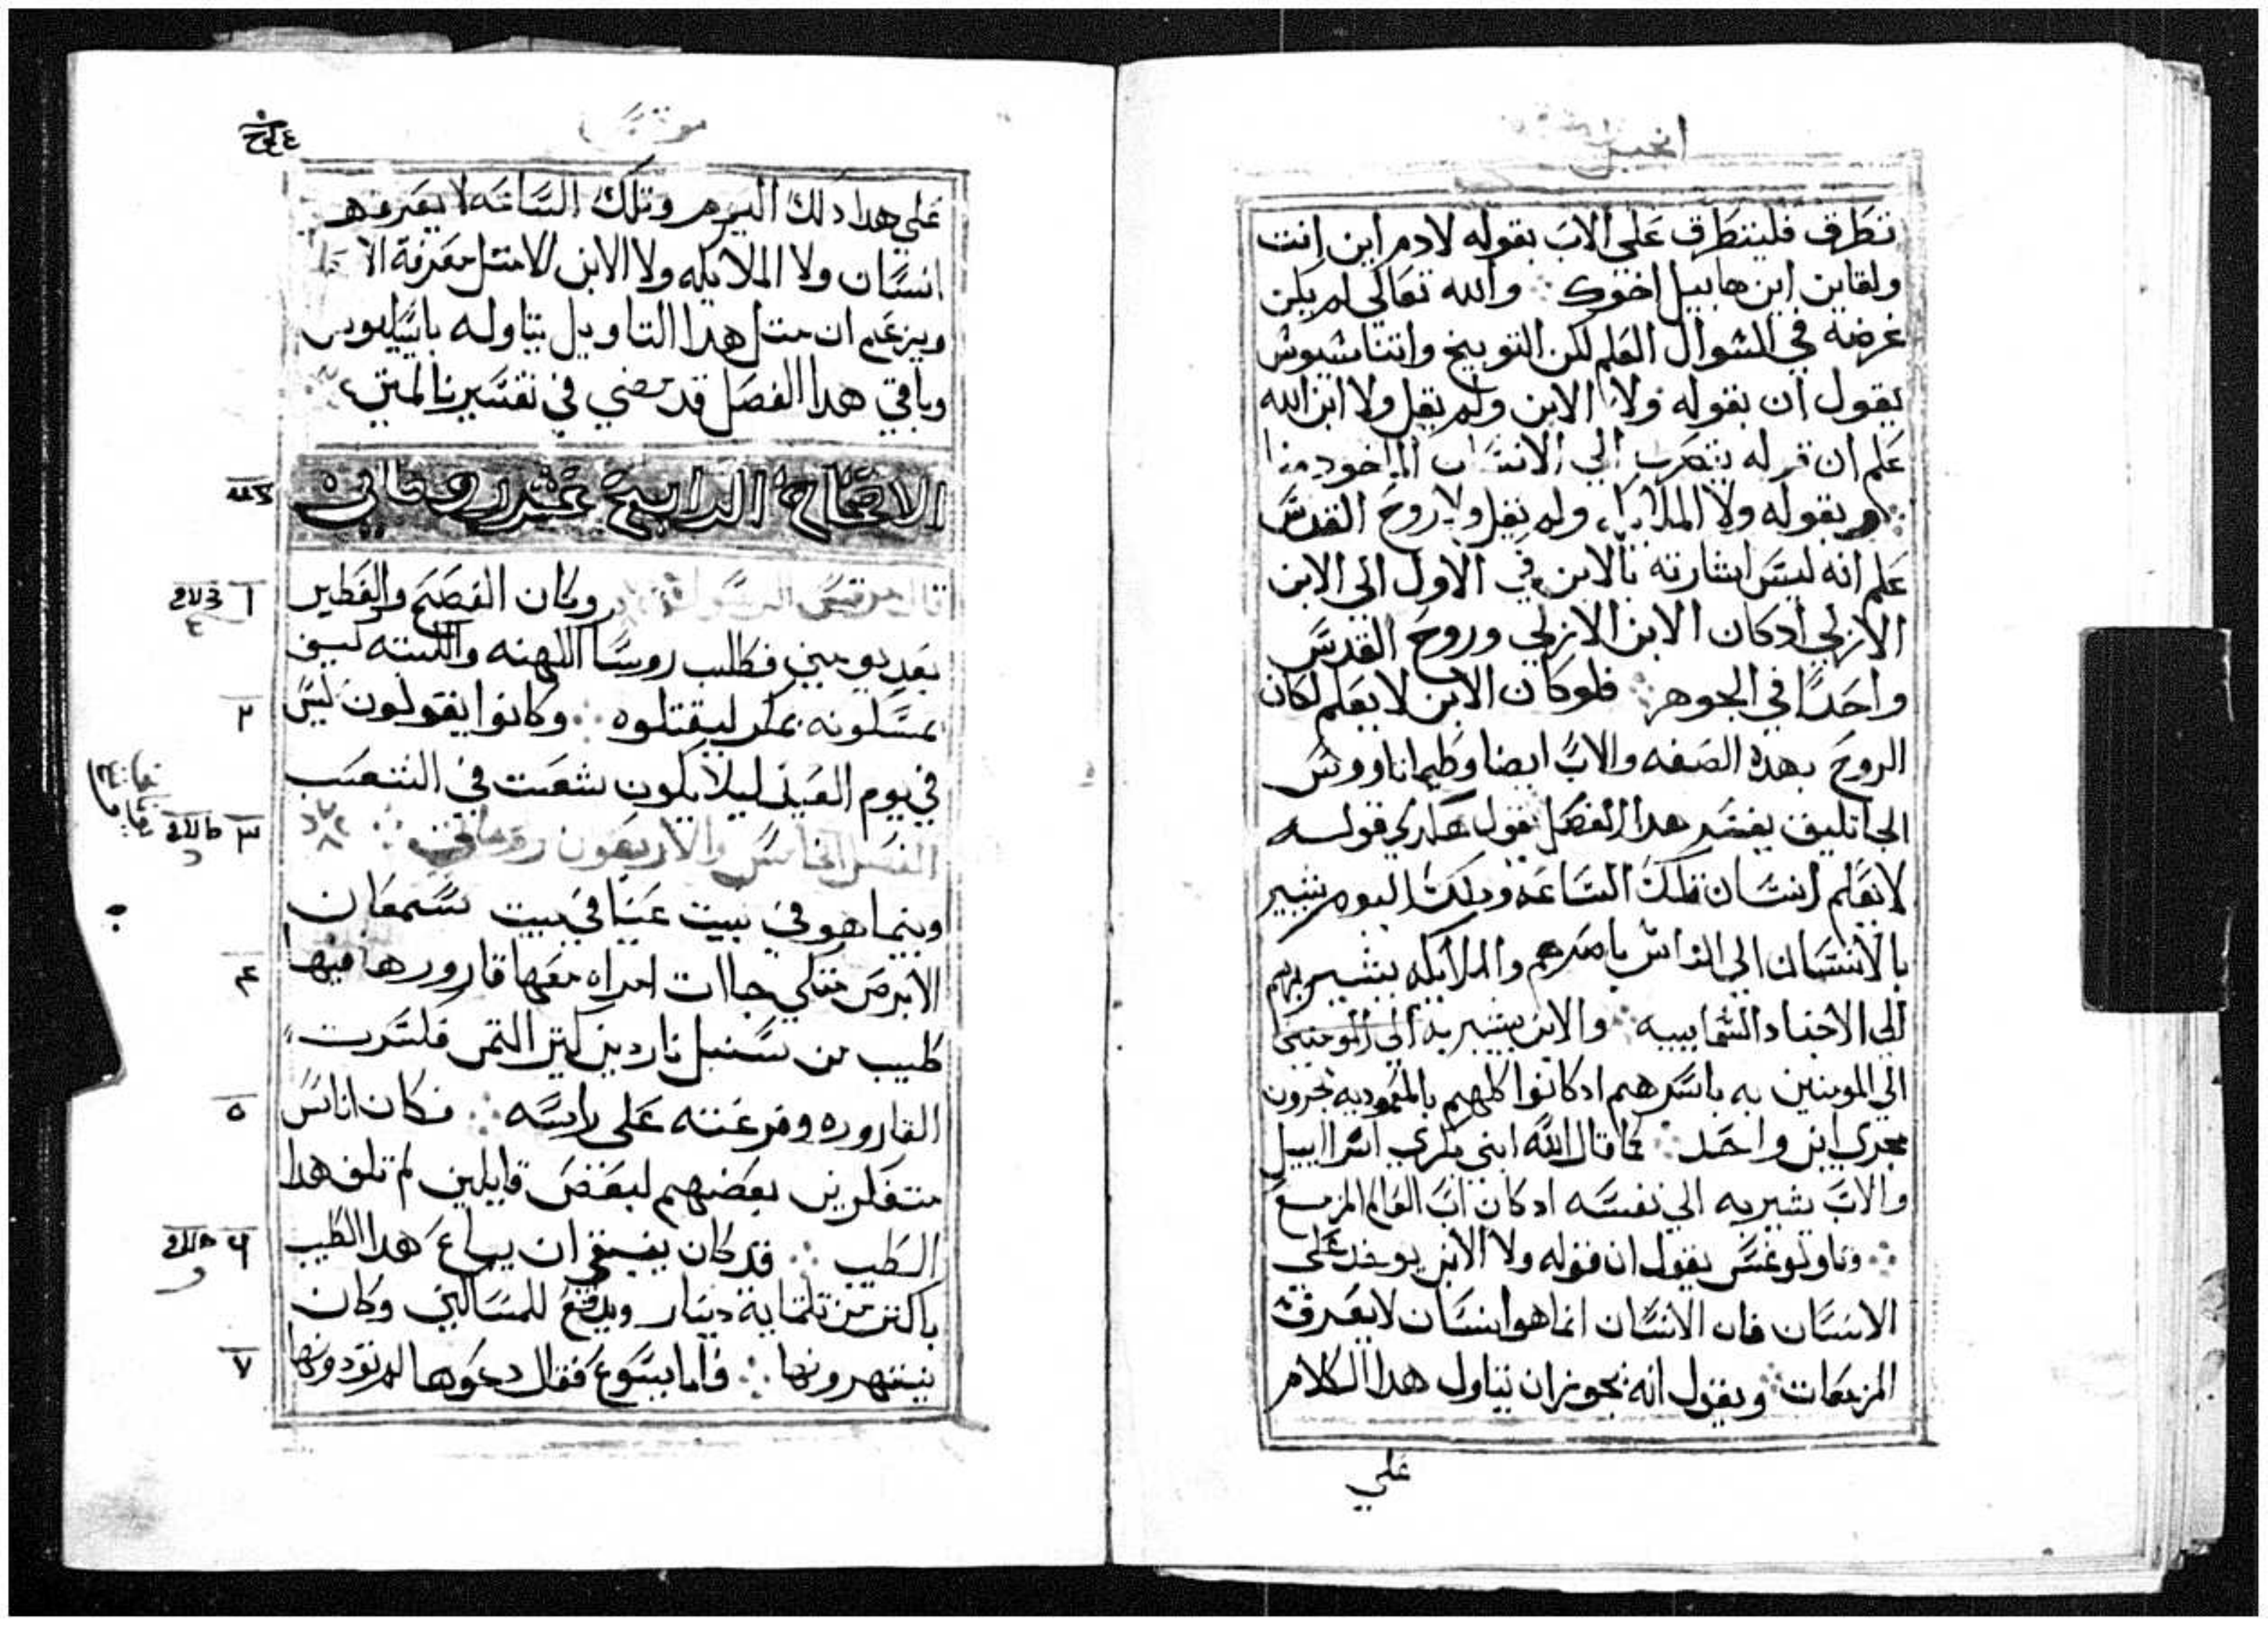 انجيل
تطرق فلينتطرق على الاب بقوله لادم اين انت
ولقاين اين هابيل اخوك ∴ والله تعالى لم يكن
غرضه في السوال العلم لكن التوبيخ واتناسيوس
يقول ان بقوله ولا الابن ولم يقل ولا ابن الله
علم ان قوله ينصرف الي الانسان الماخود منا
∴ وبقوله ولا الملايكه ولم يقل ولا روح القدس
علم انه ليس اشارته بالابن في الاول الي الابن
الازلي ادكان الابن الازلي وروح القدس
واحدًا في الجوهر ∴ فلوكان الابن لا يعلم لكان
الروح بهده الصفه والاب ايضا وطيماتاووس
الجاتليق يفسر هدا الفصل بقول هكدي قوله
لا يعلم انسان تلك الساعه ودلك اليوم يشير
بالانسان الي الناس باسرهم والملايكه يشير بهم
الي الاجناد السماييه ∴ والابن يشير به الي المومنين
الي المومنين به باسرهم ادكانوا كلهم بالمعموديه يجرون
مجري ابن واحد ∴ كما قال الله ابني بكري اسراييل
والاب يشير به الي نفسه ادكان اب العالم المزمع
∴ وتاولوغس يقول ان قوله ولا الابن يوخد علي
الانسان فان الانسان انما هو انسان لا يعرف
المزمعات ∴ ويقول انه يجوز ان نتاول هدا الكلام
علي
مرقس
علي هدا دلك اليوم وتلك الساعه لا يعرفهم
انسان ولا الملايكه ولا الابن الا مثل معرفة الاب
ويزعم ان مثل هدا التاويل يتاوله باسيليوس
وباقي هدا الفصل قد مضي في تفسيرنا لمتي
الاصحاح الرابع عشر روماني
قال مرقس الرسول وكان الفصح والفطير
١
بعد يومين فطلب روسا الكهنه والكتبه كيف
يمسكونه بمكر ليقتلوه ∴ وكانوا يقولون ليس
٢
في يوم العيد ليلا يكون شعت في الشعب
الفصل الخامس والاربعون روماني ∴
٣
وبينما هو في بيت عنيا في بيت سمعان
الابرص متكي جاات امراه معها قاروره فيها
٤
طيب من سنبل ناردين كتير التمن فكسرت
القاروره وفرغته على راسه ∴ فكان اناس
٥
متفكرين بعضهم لبعض قايلين لم تلف هدا
الطيب ∴ قد كان ينبغي ان يباع هدا الطيب
٦
باكتر من تلتماية دينار ويدفع للمساكين وكان
ينتهرونها ∴ فاما يسوع فقال دعوها لم تودونها
٧